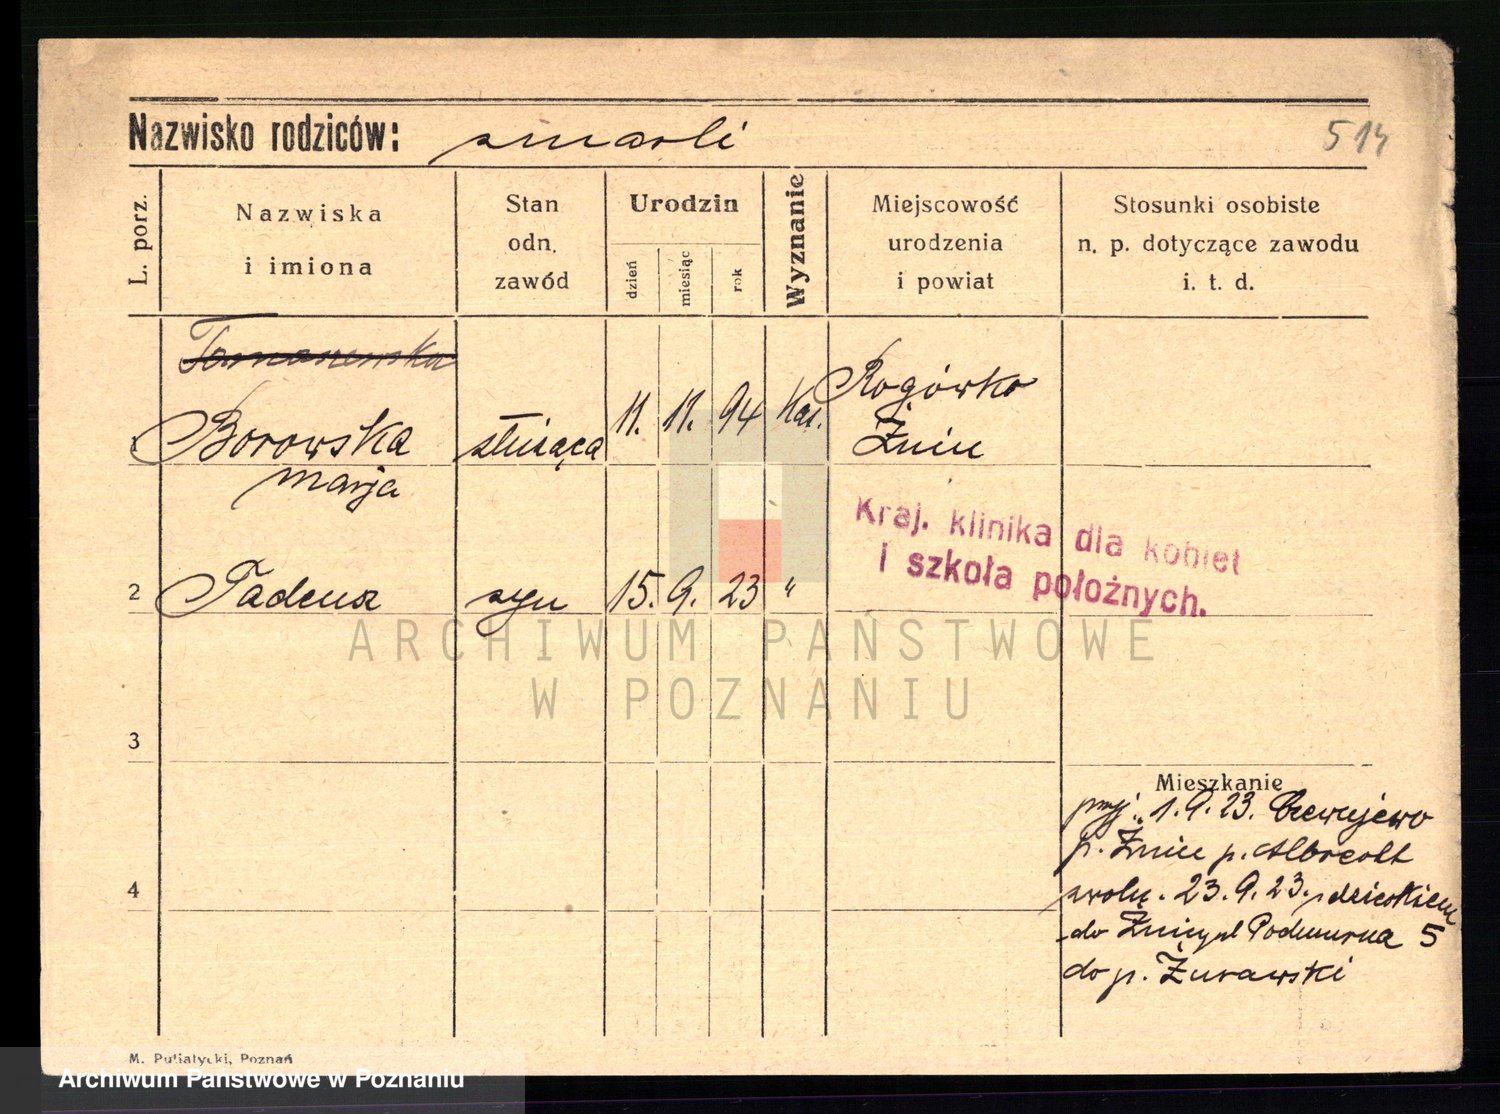 Nazwisko rodziców: zmarli
514
L. porz.
Nazwiska
i imiona
Stan
odn.
zawód
Urodzin
dzień
miesiąc
rok
Wyznanie
Miejscowość
urodzenia
i powiat
Stosunki osobiste
n. p. dotyczące zawodu
i. t. d.
Rogówko
Borowska służąca 11. 11. 94 Kat. Żnin
Marja
Kraj. klinika dla kobiet
i szkoła położnych.
2 Tadeusz syn 15. 9. 23 "
ARCHIWUM PAŃSTWOWE
W POZNANIU
3
Mieszkanie
przyj. 1. 9. 23.
p. Żnin p. Albrecht
4
zwoln. 23. 9. 23. z dzieckiem
do Żnin ul Podmurna 5
do p. Żurawski
M. Putiatycki, Poznań
Archiwum Państwowe w Poznaniu